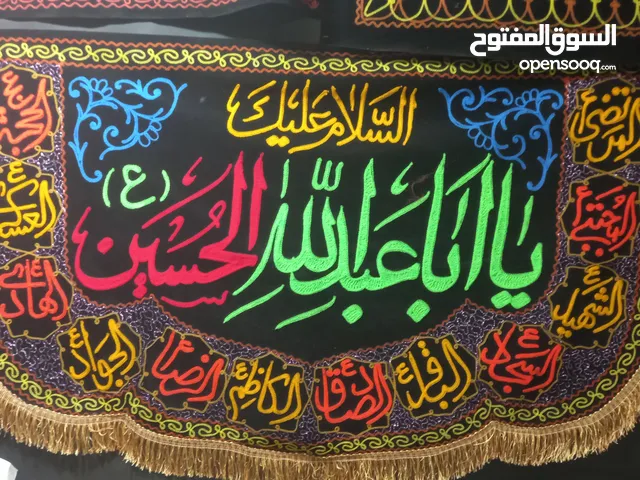 السوق المفتوح
opensooq.com
السلام عليك
يا ابا عبدالله الحسين
(ع)
المرتضى ع
المجتبى ع
الشهيد ع
السجاد ع
الباقر ع
الصادق ع
الكاظم ع
الرضا ع
الجواد ع
الهادي ع
العسكري ع
الحجة ع